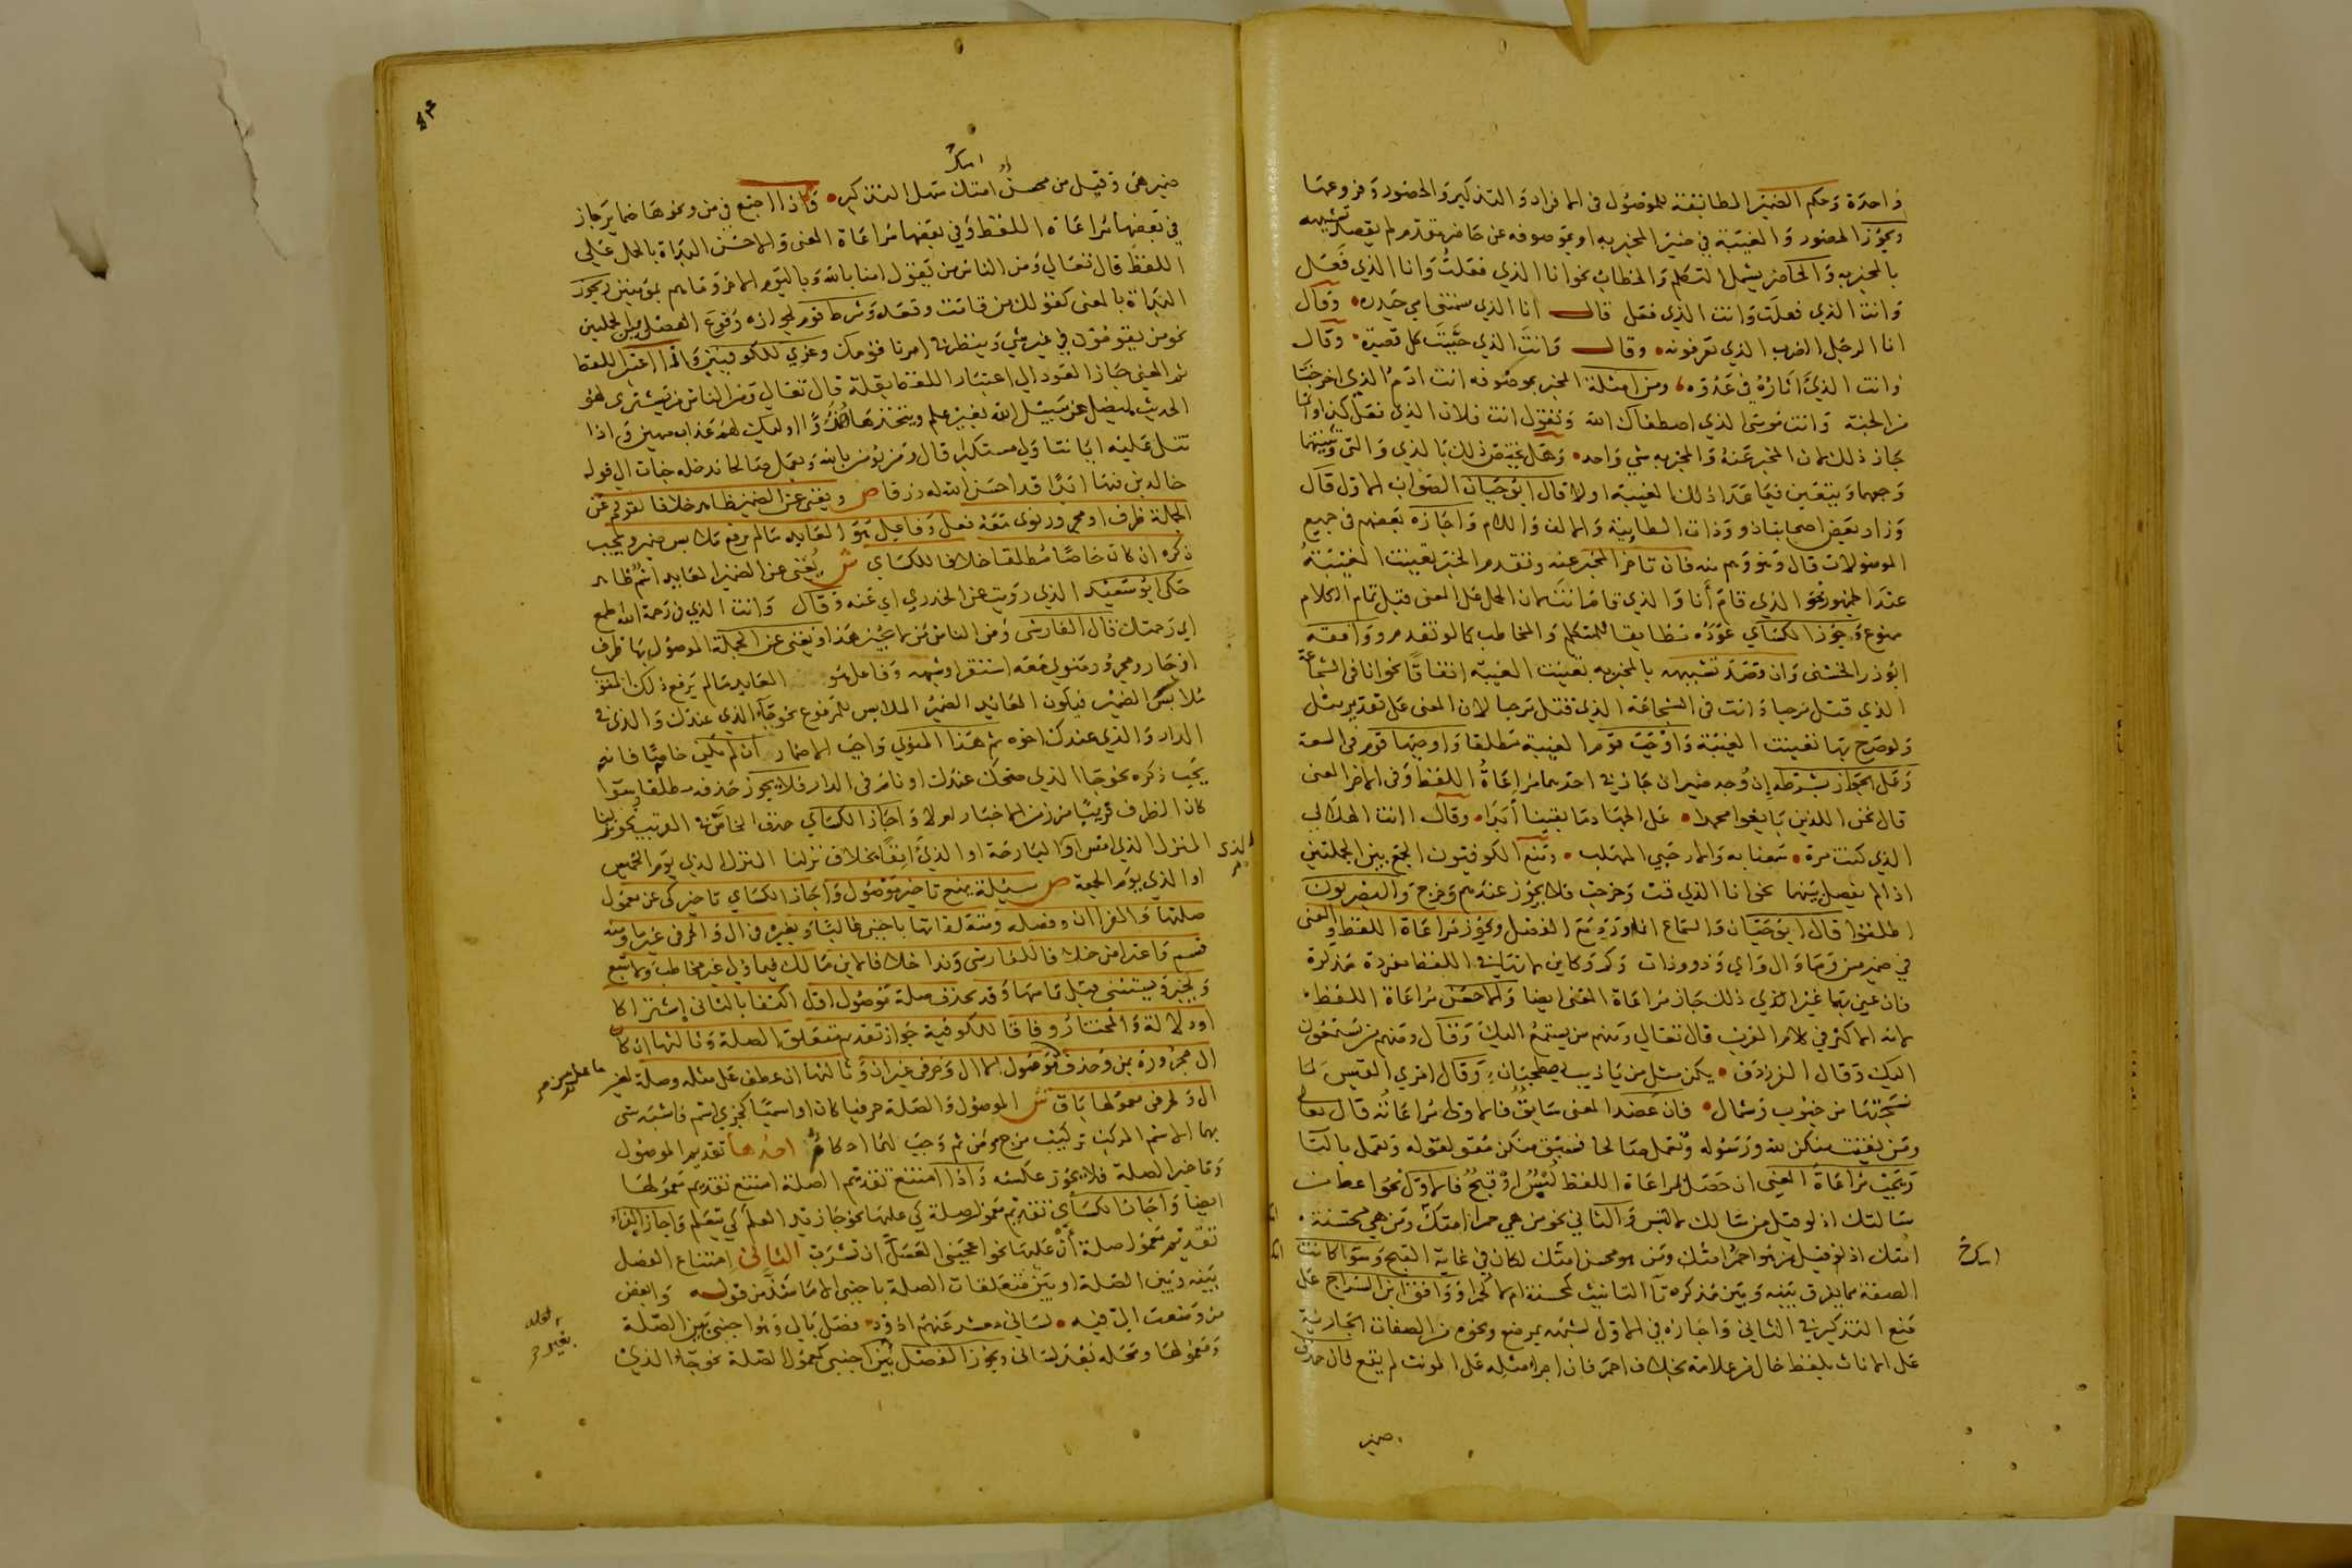 واحدة وحكم الضمير المطابقة للموصول في الافراد والتذكير والحضور وفروعها
ويجوز الحضور والغيبة في ضمير المخبر به او بموصوفه عن حاضر مقدم لم يقصد تشبيهه
بالمخبر به والحاضر يشمل التكلم والخطاب نحو انا الذي فعلت وانا الذي فعل
وانت الذي فعلت وانت الذي فعل قال انا الذي سمتني امي حيدره وقال
انا الرجل الضرب الذي تعرفونه وقال وانت الذي حببت كل قصيرة وقال
وانت الذي اثاره في عدوه ومن امثلة المخبر بموصوفه انت ادم الذي اخرجتنا
من الجنة وانت موسى الذي اصطفاك الله وتقول انت فلان الذي فعل كذا وانما
جاز ذلك لان المخبر عنه والمخبر به شي واحد وهل يختص ذلك بالذي والتي وتثنيتهما
وجمعهما ويتعين فيما عدا ذلك الغيبة اولا قال ابو حيان الصواب الاول قال
وزاد بعض اصحابنا ذو وذات الطايية والالف واللام واجازه بعضهم في جميع
الموصولات قال وهو وهم منه فان تاخر المخبر عنه وتقدم الخبر تعينت الغيبة
عند الجمهور نحو الذي قام أنا والذي قام انت لان الحمل على المعنى قبل تمام الكلام
ممنوع وجوز الكساي عوده مطابقا للمتكلم والمخاطب كما لو تقدم ووافقه
ابو ذر الخشني وان قصد تشبيهه بالمخبر به تعينت الغيبة اتفاقا نحو انا في الشجاعة
الذي قتل مرحبا وانت في الشجاعة الذي قتل مرحبا لان المعنى على تقدير مثل
ولو صرح بها تعينت الغيبة واوجب قوم الغيبة مطلقا واوجبها قوم في السعة
وعلى الجواز بشرطه إن وجد ضميران جاز في احدهما مراعاة اللفظ وفي الاخر المعنى
قال نحن اللذين بايعوا محمدا على الجهاد ما بقينا أبدا وقال اانت الهلالي
الذي كنت مرة سمعنا به والارحبي المهلب ومنع الكوفيون الجمع بين الجملتين
اذا لم يفصل بينهما نحو انا الذي قمت وخرجت فلا يجوز عندهم وخرج والبصريون
اطلقوا قال ابو حيان والسماع انما ورد مع الفصل ويجوز مراعاة اللفظ والمعنى
في ضمير من وما وال واي وذو وذات وكم وكاين لانها في اللفظ مفردة مذكرة
فان عني بها غير الذي ذلك جاز مراعاة المعنى ايضا والاحسن مراعاة اللفظ
لانه الاكثر في كلام العرب قال تعالى ومنهم من يستمع اليك وقال ومنهم من يستمعون
اليك وقال الفرزدق يكن مثل من ياذيب يصطحبان وقال امرئ القيس لما
نسجتها من جنوب وشمال فان عضد المعنى سابق فالاولى مراعاته قال تعالى
ومن يقنت منكن لله ورسوله وتعمل صالحا فسبق منكن مقو لقوله وتعمل بالتا
وتجب مراعاة المعنى ان حصل بمراعاة اللفظ لبس او قبح فالاول نحو اعط من
سالتك اذ لو قيل من سالك لالتبس والثاني نحو من هي حمرا امتك ومن هي محسنة
امتك اذ لو قيل من هو احمر امتك ومن هو محسن امتك لكان في غاية القبح وسوا كانت
الصفة مما يفرق بينه وبين مذكره تا التانيث كمحسنة ام لا كحمرا ووافق ابن السراج على
منع التذكير في الثاني واجازه في الاول لشبهه بمرضع ونحوه من الصفات الجارية
على الاناث بلفظ خال من علامة بخلاف احمر فان اجرا مثله على المونث لم يقع فان حذف
ضمير
ضمير هى وقيل من محسن امتك سهل التذكير واذا اجتمع في من ونحوها ضماير جاز
في بعضها مراعاة اللفظ وفي بعضها مراعاة المعنى والاحسن البداة بالحمل على
اللفظ قال تعالى ومن الناس من يقول امنا بالله وباليوم الاخر وما هم بمؤمنين ويجوز
البداة بالمعنى كقولك من قامت وقعد وشرط قوم لجوازه وقوع الفصل بين الجملتين
نحو من يقومون في غير شي وينظر في امرنا قومك وعزي للكوفيين واذا اعتبر اللفظ
ثم المعنى جاز العود الى اعتبار اللفظ بقلة قال تعالى ومن الناس من يشتري لهو
الحديث ليضل عن سبيل الله بغير علم ويتخذها هزوا اوليك لهم عذاب مهين واذا
تتلى عليه اياتنا ولى مستكبرا قال ومن يؤمن بالله ويعمل صالحا ندخله جنات الى قوله
خالدين فيها ابدا قد احسن الله له رزقا ص ويغني عن الضمير ظاهر خلافا لقوم وعن
الجملة ظرف او مجرور نوى معه فعل وفاعل هو العايد ما لم يرفع ملابس ضمير ويجب
ذكره ان كان خاصا مطلقا خلافا للكساي ش يغني عن الضمير العايد اسم ظاهر
حكى ابو سعيد الذي رويت عن الخدري اي عنه وقال وانت الذي في رحمة الله اطمع
اي رحمتك قال الفارسي ومن الناس من لا يجيز هذا ويغني عن الجملة الموصول بها ظرف
او جار ومجرور منوي معه استقر او شبهه وفاعل هو العايد ما لم يرفع ذلك المنوي
ملابس الضمير فيكون العائد الضمير الملابس للمرفوع نحو جا الذي عندك والذي في
الدار والذي عندك اخوه ثم هذا المنوي واجب الاضمار ان لم يكن خاصا فانه
يجب ذكره نحو جا الذي ضحك عندك او نام في الدار فلا يجوز حذفه مطلقا سوا
كان الظرف قريبا من زمن الاخبار ام لا واجاز الكساي حذف الخاص في القريب نحو نزلنا
المنزل الذي امس او البارحة او الذي آنفا بخلاف نزلنا المنزل الذي يوم الخميس
او الذي يوم الجمعة ص سيلة يمنع تاخير موصول واجاز الكساي تاخير كي عن معمول
صلتها والفرا ان وفصله ومتعلقاتها باجنبي غالبا وبغيره في ال والحرفي غير ما ومنه
قسم واعتراض خلافا للفارسي وندا خلافا لابن مالك فيما ولي غير مخاطب ولا يتبع
ويخبر ويستثنى قبل تمامها وقد يحذف صلة موصول اول اكتفا بالثاني إشتركا
او دلالة والمختار وفاقا للكوفية جواز تقديم متعلق الصلة وثالثها ان كان
ال مجرورة بمن وحذف موصول الا ال وحرفي غير ان وثالثها ان عطف على مثله وصلة لغير
ال ولحرفي معمولها باق ش الموصول والصلة حرفيا كان او اسميا كجزئي اسم فاشبه شي
بهما الاسم المركب تركيب مزج ومن ثم وجب لهما احكام احدها تقديم الموصول
وتاخير الصلة فلا يجوز عكسه واذا امتنع تقديم الصلة امتنع تقديم معمولها
ايضا واجاز الكساي تقديم معمول صلة كي عليها نحو جا زيد العلم كي يتعلم واجاز الفراء
تقديم معمول صلة أن عليها نحو اعجبني العسل ان تشرب الثاني امتناع الفصل
بينه وبين الصلة او بين متعلقات الصلة باجنبي الا ما شذ من قوله وابغض
من وضعت الى فيه لساني معشر عنهم اذود فصل بالي وهو اجنبي بين الصلة
ومعمولها ومحله بعد لساني ويجوز الفصل بغير اجنبي كمعمول الصلة نحو جاء الذي